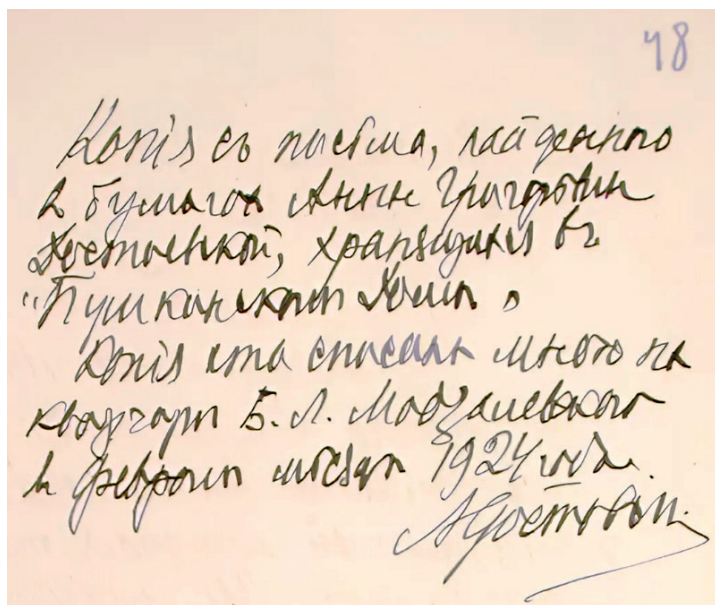 48
Копія съ письма, найденного
въ бумагах Анны Григорьевны
Достоевской, хранящихся въ
"Пушкинском Доме".
Копія эта списана мною на
квартире Б. Л. Модзалевского
въ феврале месяце 1924 года.
АДостоевск